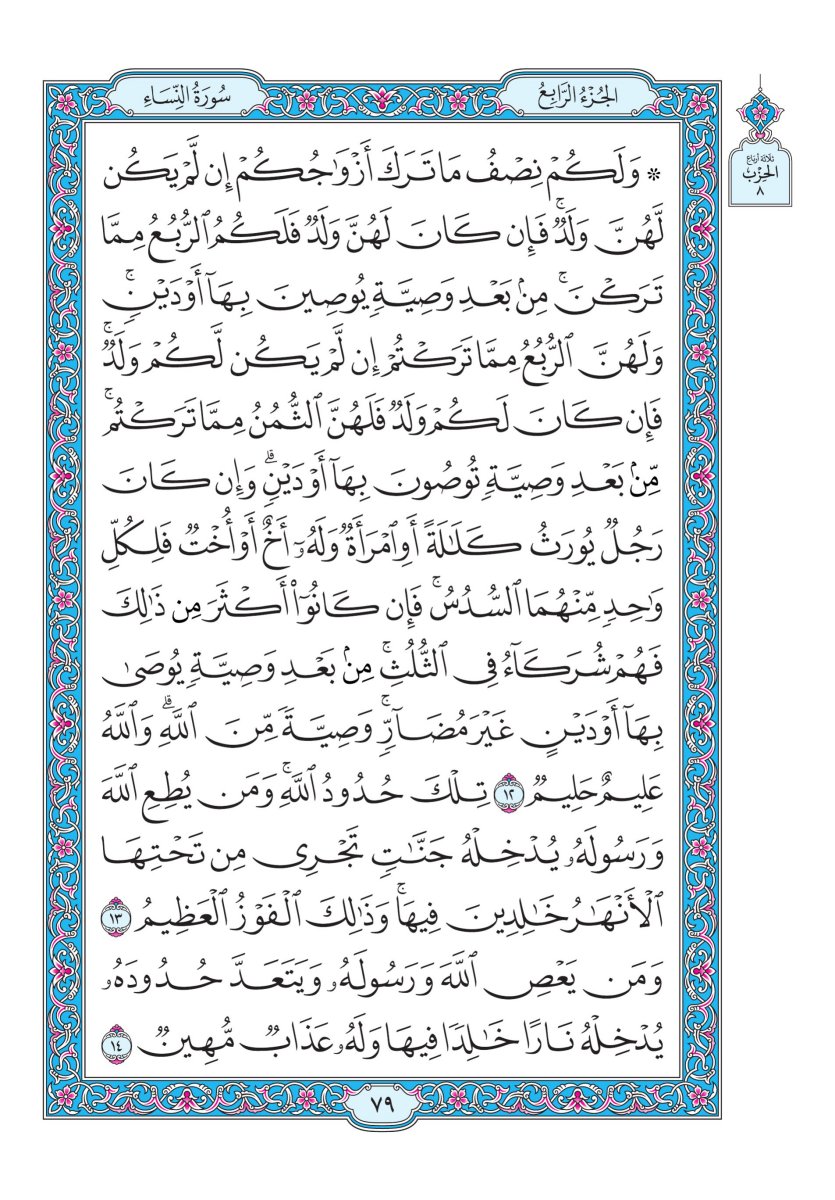 الجُزْءُ الرَّابِعُ
سُورَةُ النِّسَاءِ
ثلاثة أرباع
الحِزْب
٨
* وَلَكُمْ نِصْفُ مَا تَرَكَ أَزْوَٰجُكُمْ إِن لَّمْ يَكُن
لَّهُنَّ وَلَدٌۚ فَإِن كَانَ لَهُنَّ وَلَدٌ فَلَكُمُ ٱلرُّبُعُ مِمَّا
تَرَكْنَۚ مِنۢ بَعْدِ وَصِيَّةٍ يُوصِينَ بِهَآ أَوْ دَيْنٍۚ
وَلَهُنَّ ٱلرُّبُعُ مِمَّا تَرَكْتُمْ إِن لَّمْ يَكُن لَّكُمْ وَلَدٌۚ
فَإِن كَانَ لَكُمْ وَلَدٌ فَلَهُنَّ ٱلثُّمُنُ مِمَّا تَرَكْتُمۚ
مِّنۢ بَعْدِ وَصِيَّةٍ تُوصُونَ بِهَآ أَوْ دَيْنٍۗ وَإِن كَانَ
رَجُلٌ يُورَثُ كَلَٰلَةً أَوِ ٱمْرَأَةٌ وَلَهُۥٓ أَخٌ أَوْ أُخْتٌ فَلِكُلِّ
وَٰحِدٍ مِّنْهُمَا ٱلسُّدُسُۚ فَإِن كَانُوٓا۟ أَكْثَرَ مِن ذَٰلِكَ
فَهُمْ شُرَكَآءُ فِى ٱلثُّلُثِۚ مِنۢ بَعْدِ وَصِيَّةٍ يُوصَىٰ
بِهَآ أَوْ دَيْنٍ غَيْرَ مُضَآرٍّۚ وَصِيَّةً مِّنَ ٱللَّهِۗ وَٱللَّهُ
عَلِيمٌ حَلِيمٌ ١٢ تِلْكَ حُدُودُ ٱللَّهِۚ وَمَن يُطِعِ ٱللَّهَ
وَرَسُولَهُۥ يُدْخِلْهُ جَنَّٰتٍ تَجْرِى مِن تَحْتِهَا
ٱلْأَنْهَٰرُ خَٰلِدِينَ فِيهَاۚ وَذَٰلِكَ ٱلْفَوْزُ ٱلْعَظِيمُ ١٣
وَمَن يَعْصِ ٱللَّهَ وَرَسُولَهُۥ وَيَتَعَدَّ حُدُودَهُۥ
يُدْخِلْهُ نَارًا خَٰلِدًا فِيهَا وَلَهُۥ عَذَابٌ مُّهِينٌ ١٤
٧٩